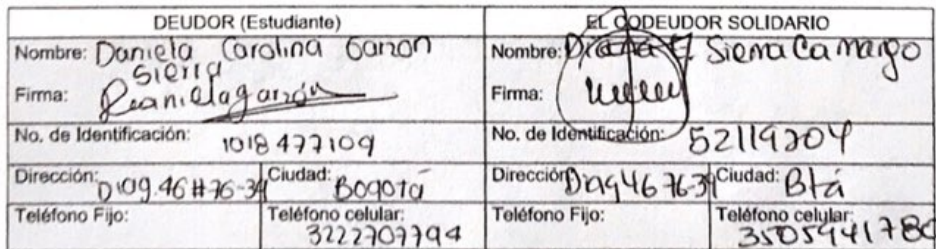 DEUDOR (Estudiante)
EL CODEUDOR SOLIDARIO
Nombre: Daniela Carolina Garzon
Sierra
Nombre: Sierra Camargo
Firma: Daniela garzón
Firma:
No. de Identificación: 1018 477109
No. de Identificación: 52119204
Dirección: Diag. 46 #76-34
Ciudad: Bogotá
Dirección: Diag 46 76-34
Ciudad: Bta
Teléfono Fijo:
Teléfono celular: 3222707794
Teléfono Fijo:
Teléfono celular: